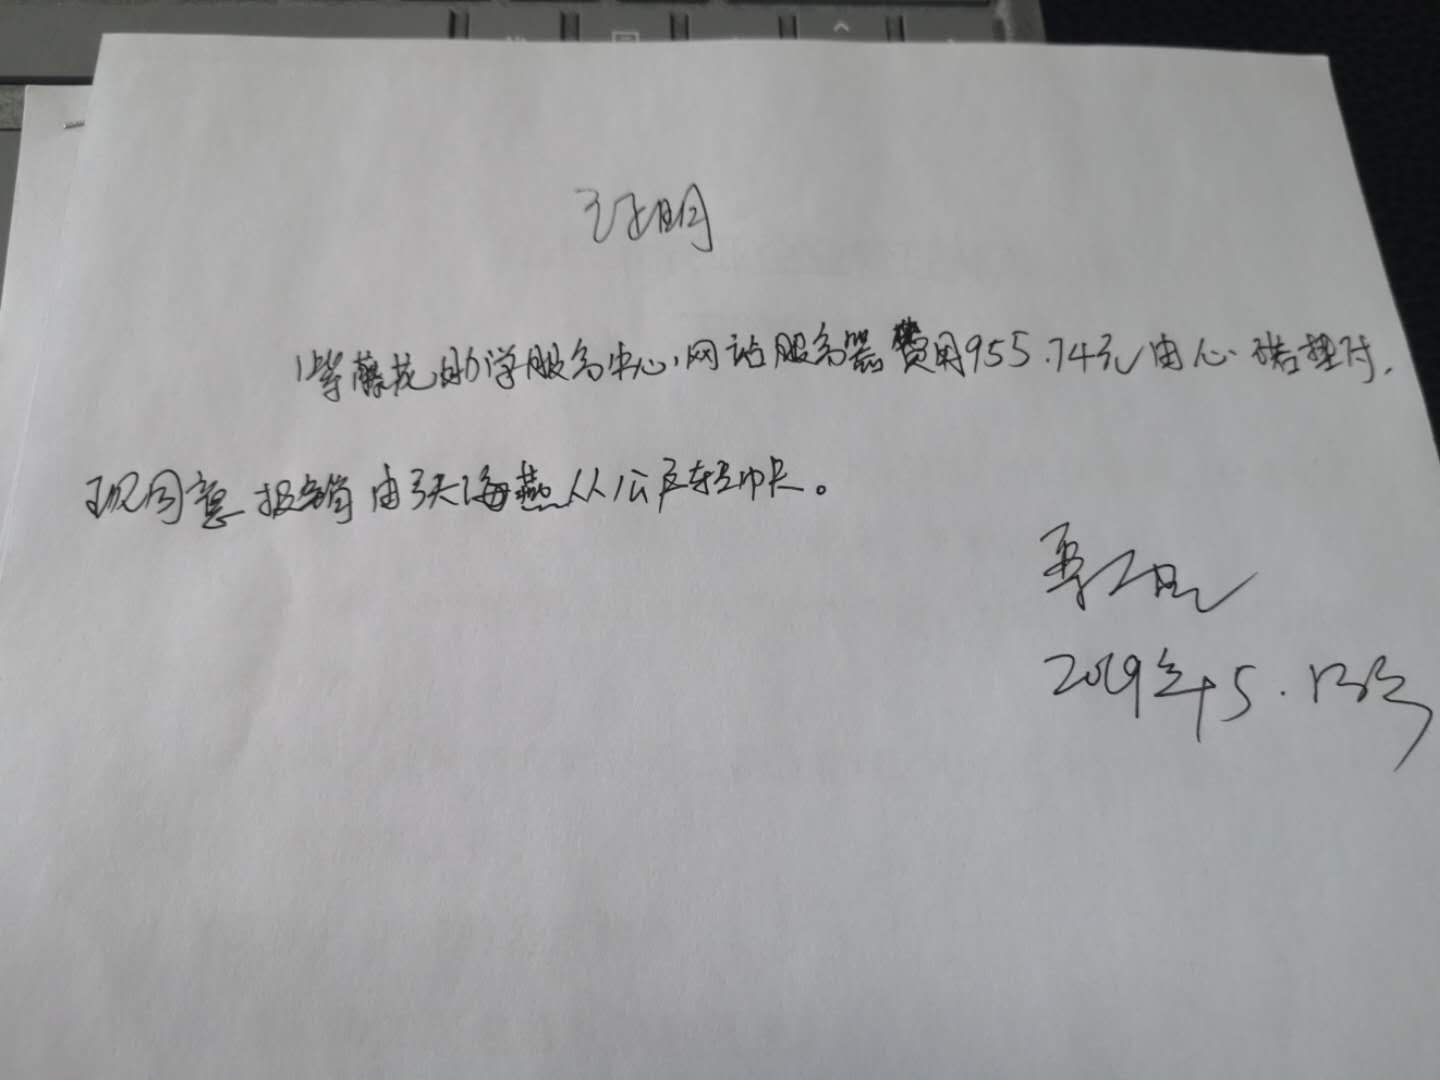 证明
紫藤花助学服务中心网站服务器费用955.74元由心诺垫付,
现同意报销由张海燕从公户转帐。
2019年5.13号